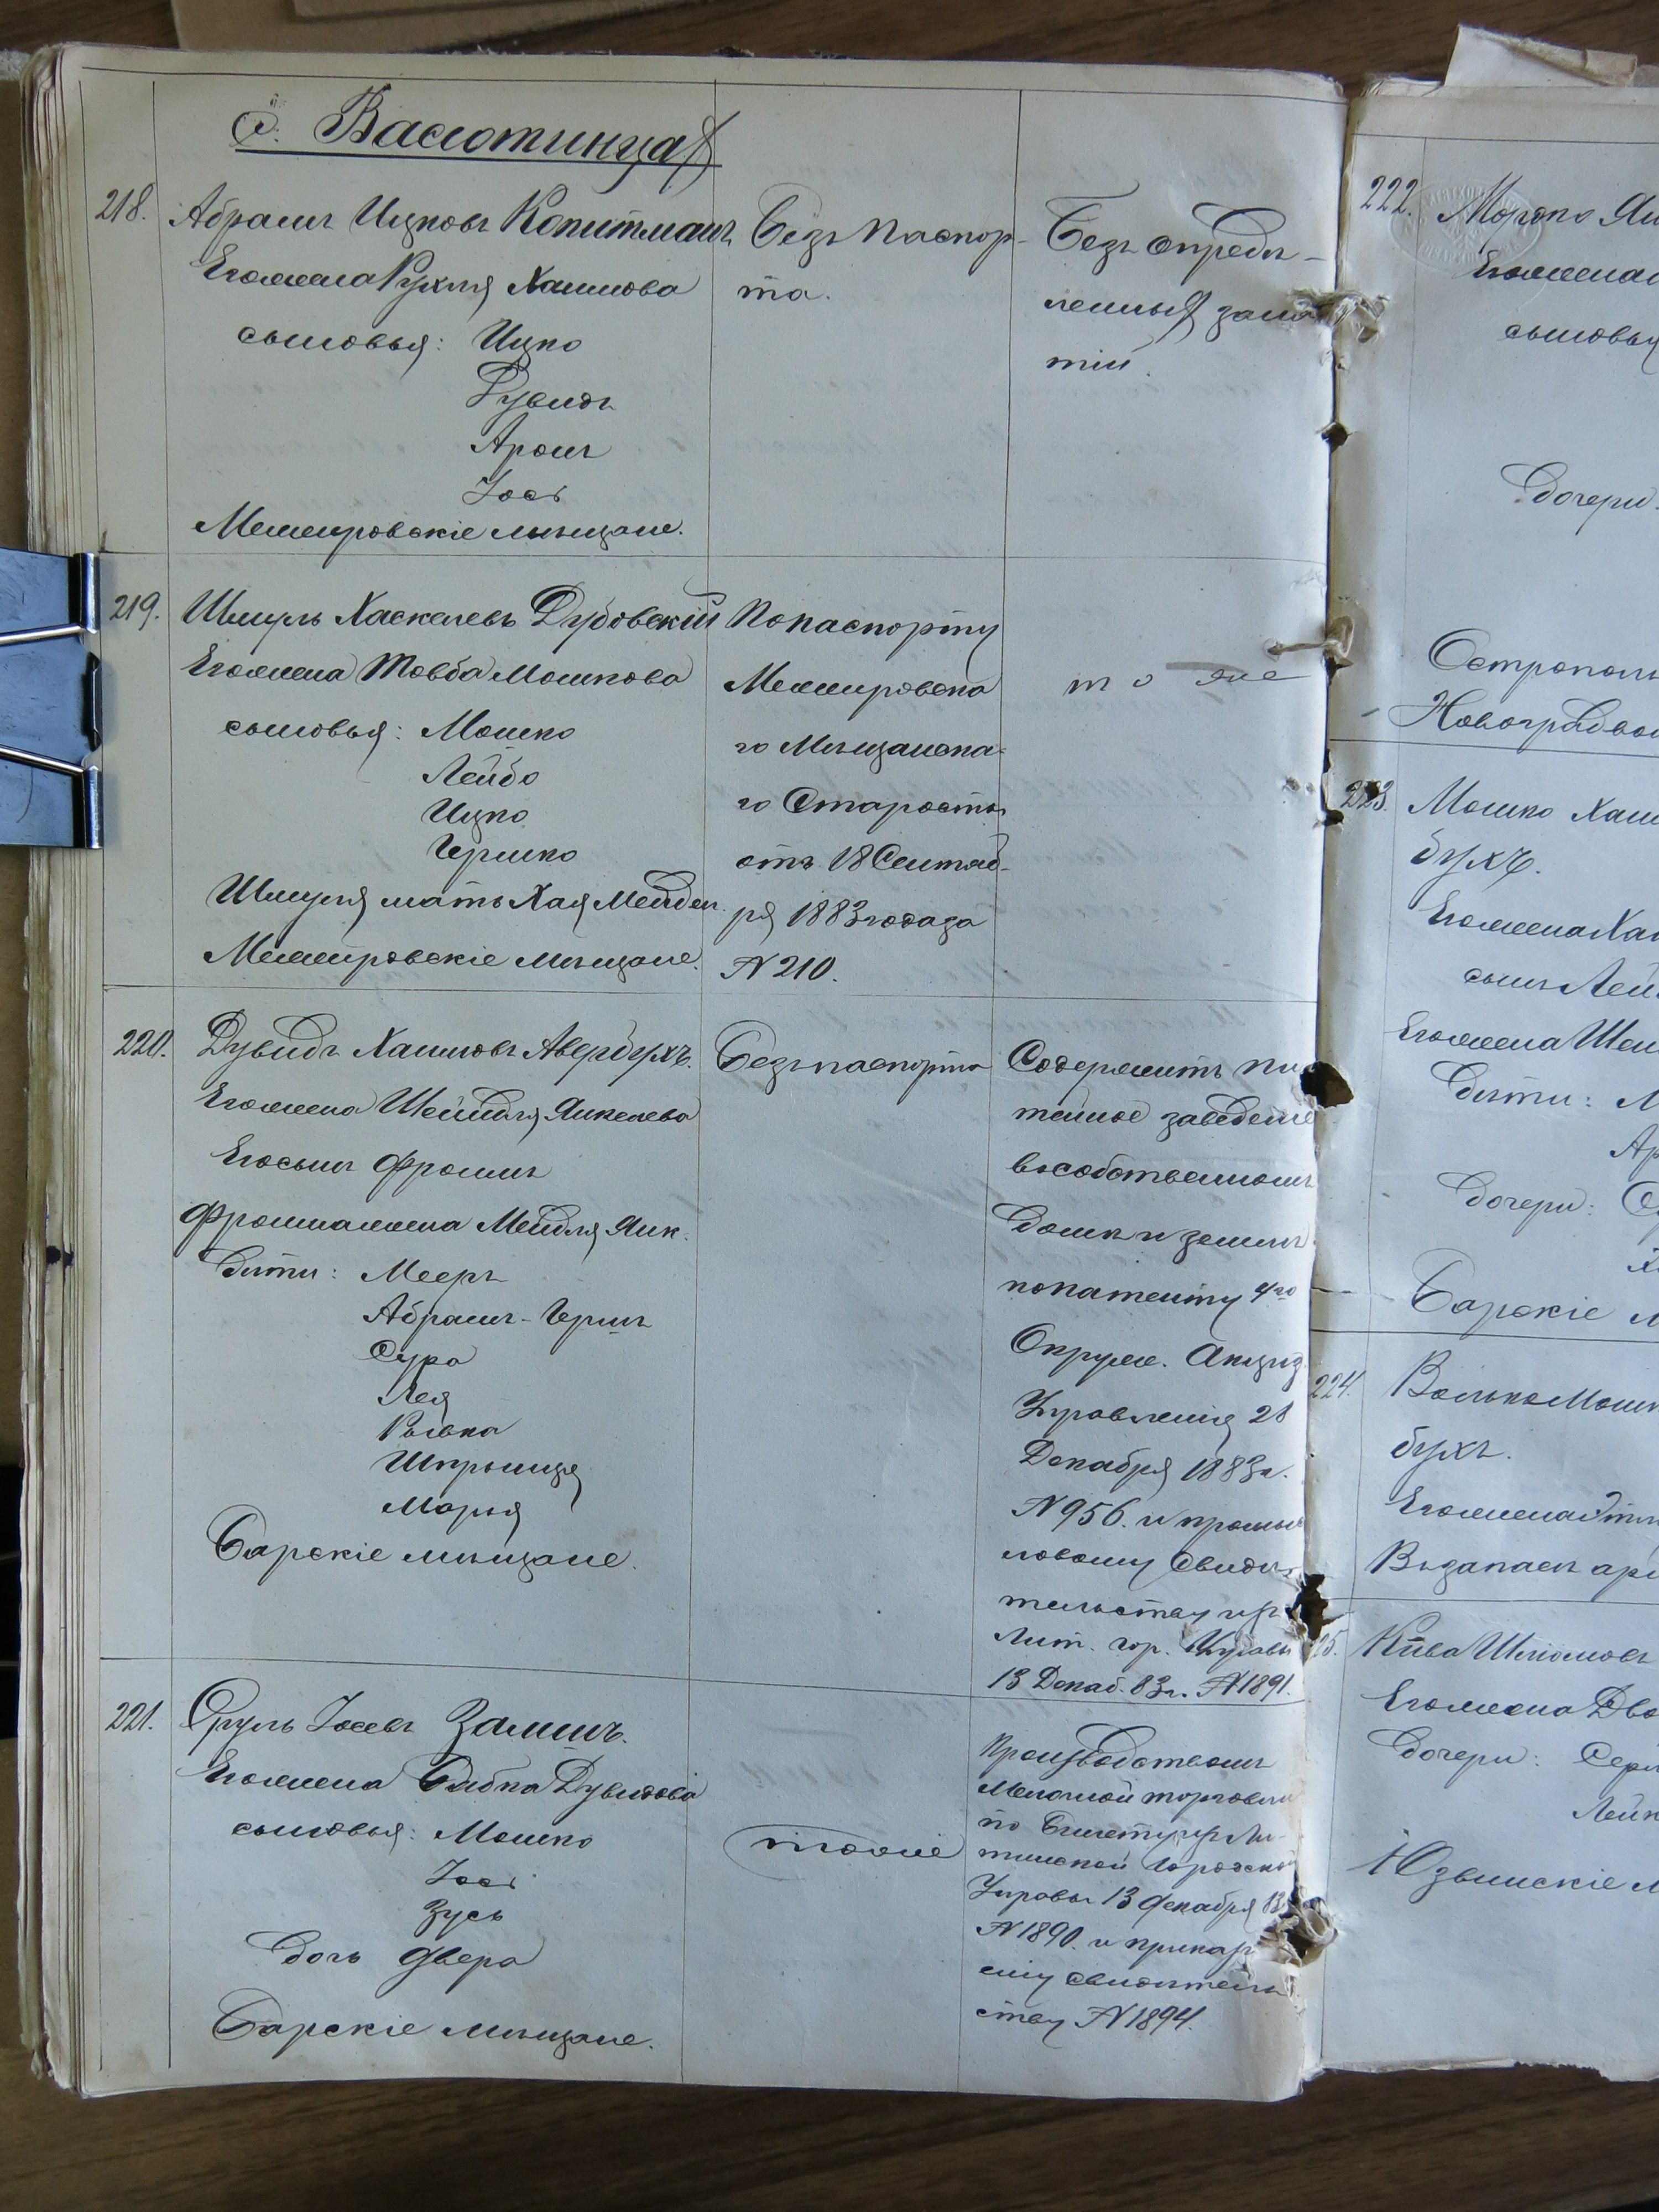 с. Васютинцах
218. Абрамъ Ицковъ Копитманъ
Его жена Рухля Хаимова
сыновья: Ицко
Дувидъ
Аронъ
Іось
Межировскіе мѣщане.
Безъ паспор-
та.
Безъ опредѣ-
ленныхъ заня
тій.
219. Шмуль Хаскелевъ Дубовскій
Его жена Товба Мошкова
сыновья: Мошко
Лейбо
Ицко
Гершко
Шмуля мать Хая Мейдел.
Межировскіе мѣщане.
По паспорту
Межировска
го Мѣщанска-
го Старосты
отъ 18 Сентяб-
ря 1883 года за
№ 210.
то же
220. Дувидъ Хаимовъ Авербухъ.
Его жена Шейндля Янкелева
Его сынъ Фроимъ
Фроима жена Мейдля Янк.
дѣти: Мееръ
Абрамъ-Гершъ
Сура
Лея
Рывка
Шпрынця
Марья
Барскіе мѣщане.
Безъ паспорта
Содержитъ пи
тейное заведеніе
въ собственномъ
домѣ и землѣ
по патенту 4го
Окруж. Акциз.
Управленія 28
Декабря 1883 г.
№ 956. и промыс
ловому свидѣ
тельству изъ
Лит. гор. Управы
13 Декаб. 83 г. № 1891.
221. Сруль Іосевъ Залманъ.
Его жена Бабка Дувидова
сыновья: Мошко
Іось
Зусь
дочь Двера
Барскіе мѣщане.
тоже
Производствомъ
Мелочной торговли
по билету изъ Ли-
тинской Городской
Управы 13 Декабря 83
№ 1890. и приказ
ему свидѣтель
ству № 1894.
222. Мошко Ян
Его жена
сыновья
дочери
Острополь
Новоградвол
223. Мошко Хаи
бухъ.
Его жена Ха
сынъ Лей
Его жена Шей
дѣти: М
Ар
дочери: С
Х
Барскіе м
224. Волько Мошк
бухъ.
Его жена Этл
Въ запасъ ар
25. Кива Шломовъ
Его жена Дво
дочери: Серл
Лейк
Юзвинскіе м